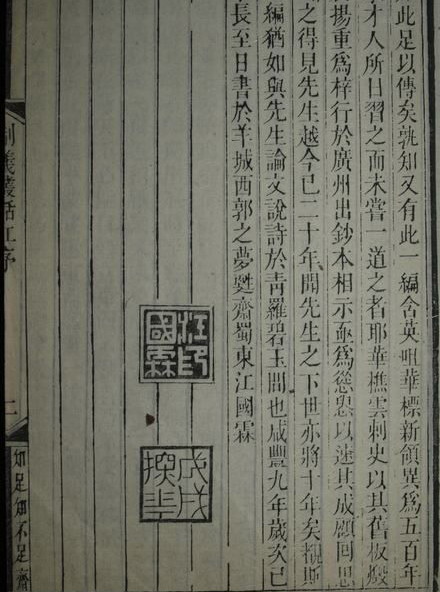 此足以傳矣孰知又有此一編含英咀華標新領異爲五百年
才人所日習之而未嘗一道之者耶華樵雲刺史以其舊板燬
揚重爲梓行於廣州出鈔本相示亟爲慫恿以速其成顧囘思
之得見先生越今已二十年聞先生之下世亦將十年矣覩斯
編猶如與先生論文說詩於青羅碧玉間也咸豐九年歲次己
長至日書於羊城西郭之夢甦齋蜀東江國霖
江印國霖
戊戌探花
制義叢話江序
二
知足知不足齋